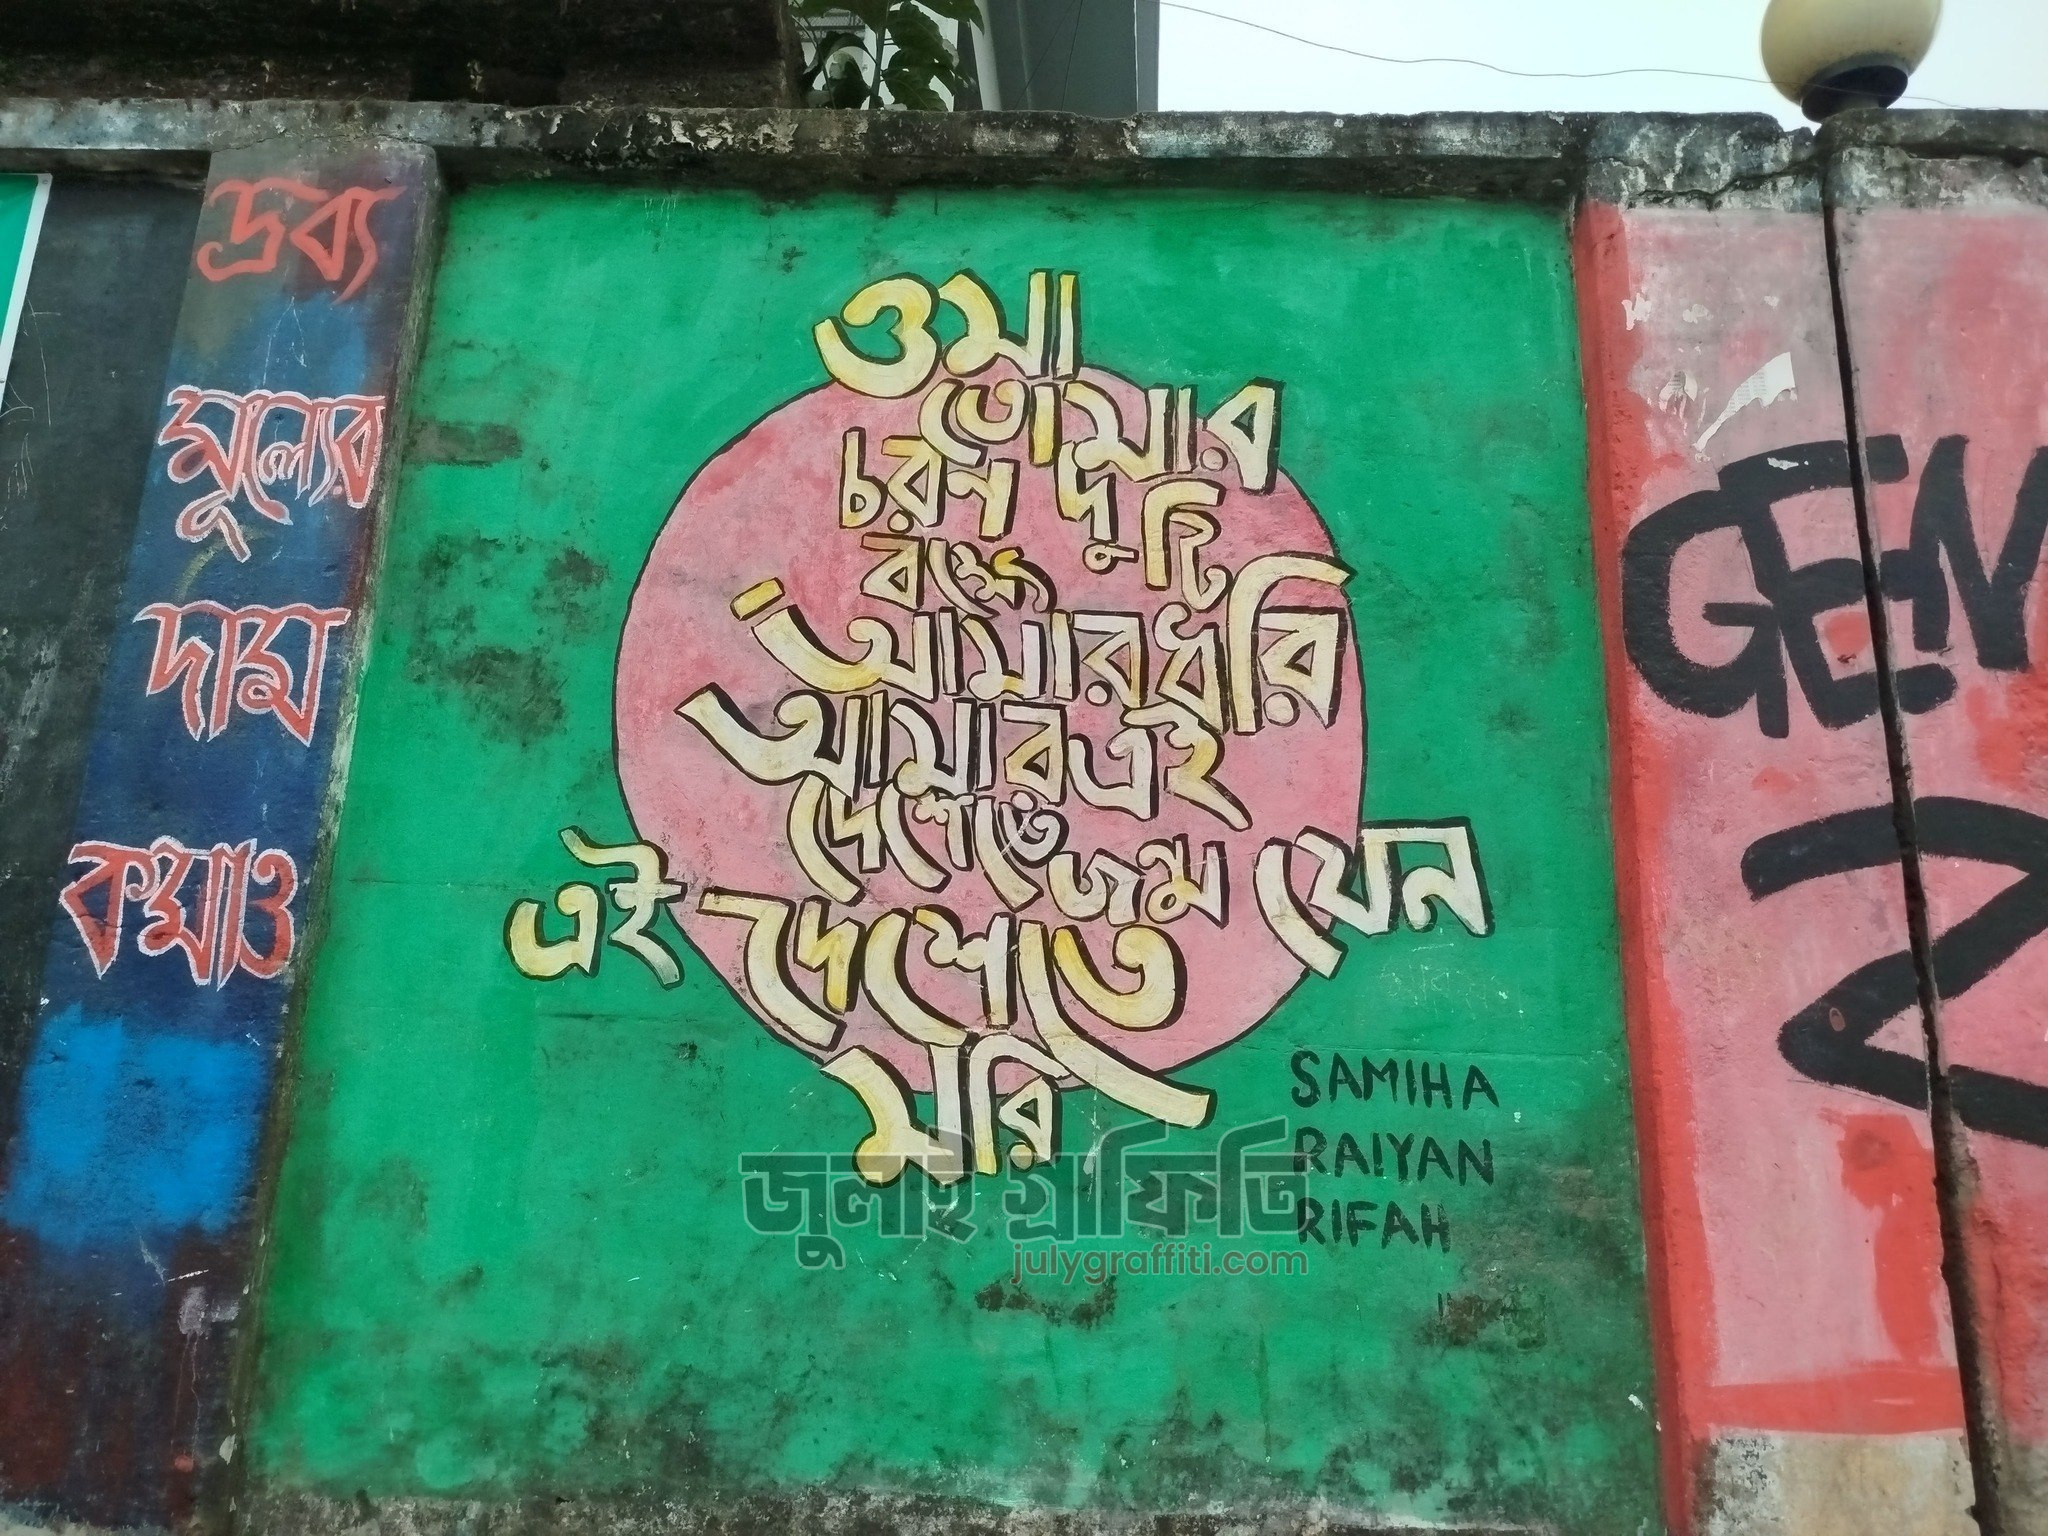 দ্রব্য
মূল্যের
দাম
কমাও
ওমা
তোমার
চরন দুটি
বক্ষে
আমার ধরি
আমার এই
দেশেতে
জন্ম যেন
এই দেশেতে
মরি
SAMIHA
RAIYAN
RIFAH
GEN
Z
জুলাই গ্রাফিতি
julygraffiti.com